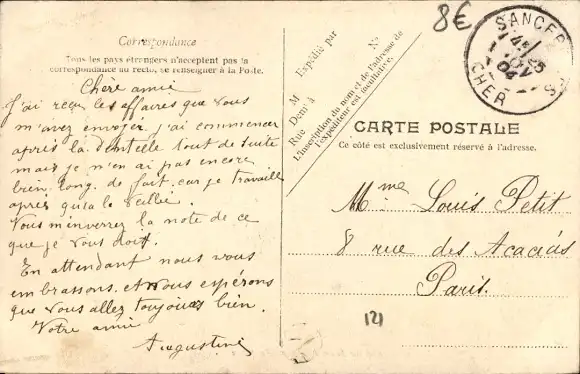 Correspondance
Tous les pays étrangers n'acceptent pas la
correspondance au recto, se renseigner à la Poste.
Chère amie
J'ai reçu les affaires que vous
m'avez envoyer j'ai commencer
après la dentelle tout de suite
mais je n'en ai pas encore
bien long de fait car je travaille
après qu'a la veillée.
Vous m'enverrez la note de ce
que je vous doit.
En attendant nous vous
embrassons et vous espérons
que vous allez toujours bien.
Votre amie
Augustine
Expédié par
M
Demt à
Rue
No
L'inscription du nom et de l'adresse de
l'expéditeur est facultative.
8€
SANCER
CHER
04
CARTE POSTALE
Ce côté est exclusivement réservé à l'adresse.
Mme Louis Petit
8 rue des Acacias
Paris.
121